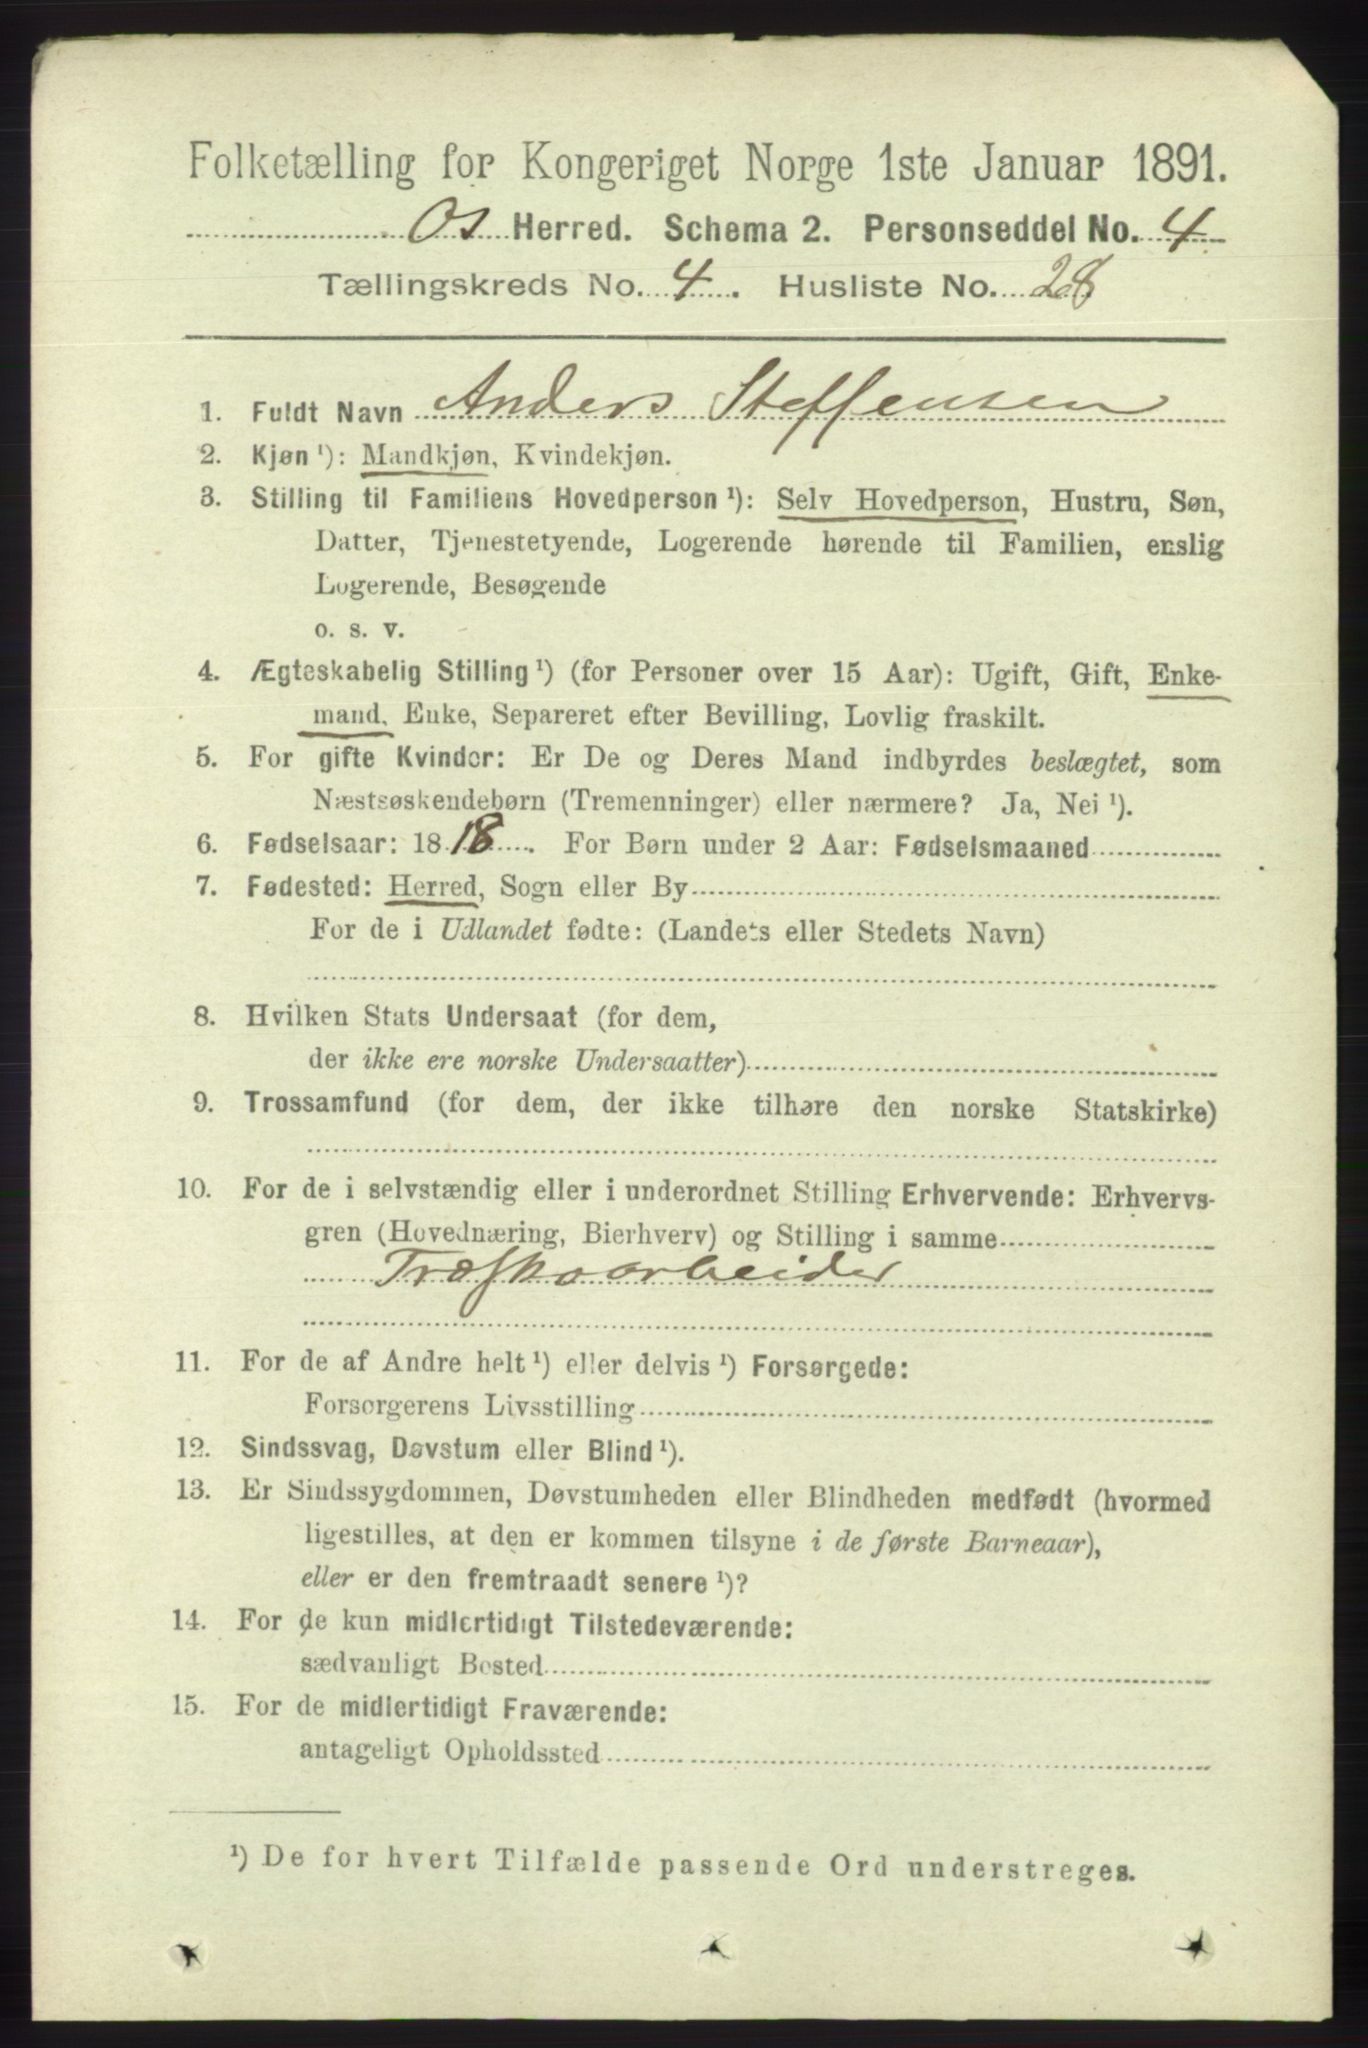 Folketælling for Kongeriget Norge 1ste Januar 1891.
Os Herred. Schema 2. Personseddel No. 4
Tællingskreds No. 4. Husliste No. 28
1. Fuldt Navn Anders Steffensen
2. Kjøn ¹): Mandkjøn, Kvindekjøn.
3. Stilling til Familiens Hovedperson ¹): Selv Hovedperson, Hustru, Søn,
Datter, Tjenestetyende, Logerende hørende til Familien, enslig
Logerende, Besøgende
o. s. v.
4. Ægteskabelig Stilling ¹) (for Personer over 15 Aar): Ugift, Gift, Enke-
mand, Enke, Separeret efter Bevilling, Lovlig fraskilt.
5. For gifte Kvinder: Er De og Deres Mand indbyrdes beslægtet, som
Næstsøskendebørn (Tremenninger) eller nærmere? Ja, Nei ¹).
6. Fødselsaar: 1818. For Børn under 2 Aar: Fødselsmaaned
7. Fødested: Herred, Sogn eller By
For de i Udlandet fødte: (Landets eller Stedets Navn)
8. Hvilken Stats Undersaat (for dem,
der ikke ere norske Undersaatter)
9. Trossamfund (for dem, der ikke tilhøre den norske Statskirke)
10. For de i selvstændig eller i underordnet Stilling Erhvervende: Erhvervs-
gren (Hovednæring, Bierhverv) og Stilling i samme
Træskoarbeider
11. For de af Andre helt ¹) eller delvis ¹) Forsørgede:
Forsørgerens Livsstilling
12. Sindssvag, Døvstum eller Blind ¹).
13. Er Sindssygdommen, Døvstumheden eller Blindheden medfødt (hvormed
ligestilles, at den er kommen tilsyne i de første Barneaar),
eller er den fremtraadt senere ¹)?
14. For de kun midlertidigt Tilstedeværende:
sædvanligt Bosted
15. For de midlertidigt Fraværende:
antageligt Opholdssted
¹) De for hvert Tilfælde passende Ord understreges.